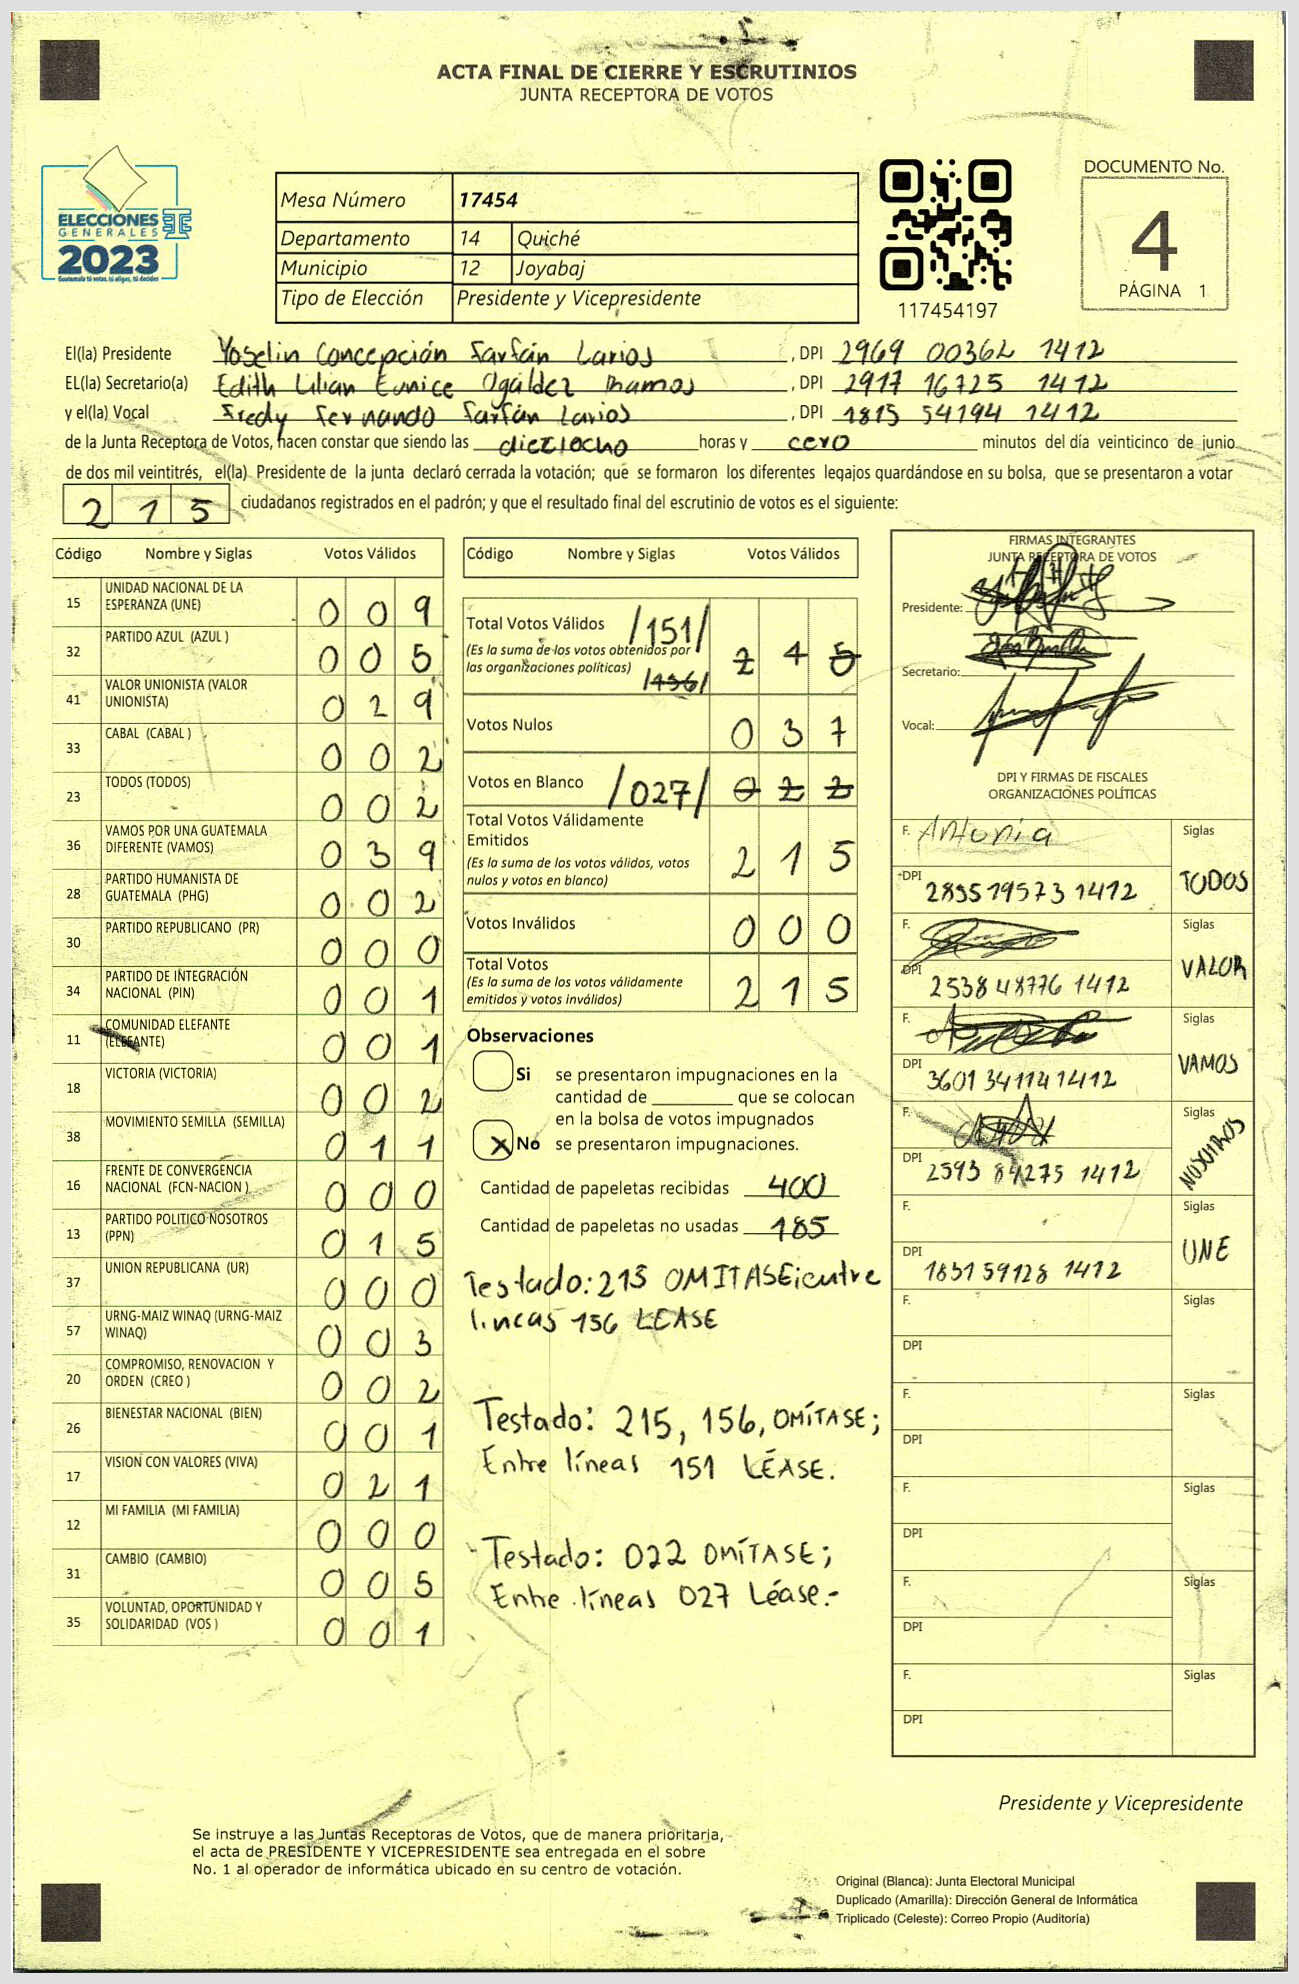 ACTA FINAL DE CIERRE Y ESCRUTINIOS
JUNTA RECEPTORA DE VOTOS
ELECCIONES
GENERALES
2023
Guatemala tú votas, tú eliges, tú decides
Mesa Número 17454
Departamento 14 Quiché
Municipio 12 Joyabaj
Tipo de Elección Presidente y Vicepresidente
117454197
DOCUMENTO No.
4
PÁGINA 1
El(la) Presidente Yoselin Concepción Farfán Larios, DPI 2969 00362 1412
EL(la) Secretario(a) Edith Lilian Eunice Ogáldez Ramos, DPI 2917 16725 1412
y el(la) Vocal Fredy Fernando Farfán Larios, DPI 1815 54194 1412
de la Junta Receptora de Votos, hacen constar que siendo las dieciocho horas y cero minutos del día veinticinco de junio
de dos mil veintitrés, el(la) Presidente de la junta declaró cerrada la votación; que se formaron los diferentes legajos quardándose en su bolsa, que se presentaron a votar
2 1 5 ciudadanos registrados en el padrón; y que el resultado final del escrutinio de votos es el siguiente:
Código Nombre y Siglas Votos Válidos
15 UNIDAD NACIONAL DE LA ESPERANZA (UNE) 0 0 9
32 PARTIDO AZUL (AZUL ) 0 0 5
41 VALOR UNIONISTA (VALOR UNIONISTA) 0 2 9
33 CABAL (CABAL ) 0 0 2
23 TODOS (TODOS) 0 0 2
36 VAMOS POR UNA GUATEMALA DIFERENTE (VAMOS) 0 3 9
28 PARTIDO HUMANISTA DE GUATEMALA (PHG) 0 0 2
30 PARTIDO REPUBLICANO (PR) 0 0 0
34 PARTIDO DE INTEGRACIÓN NACIONAL (PIN) 0 0 1
11 COMUNIDAD ELEFANTE (ELEFANTE) 0 0 1
18 VICTORIA (VICTORIA) 0 0 2
38 MOVIMIENTO SEMILLA (SEMILLA) 0 1 1
16 FRENTE DE CONVERGENCIA NACIONAL (FCN-NACION ) 0 0 0
13 PARTIDO POLITICO NOSOTROS (PPN) 0 1 5
37 UNION REPUBLICANA (UR) 0 0 0
57 URNG-MAIZ WINAQ (URNG-MAIZ WINAQ) 0 0 3
20 COMPROMISO, RENOVACION Y ORDEN (CREO ) 0 0 2
26 BIENESTAR NACIONAL (BIEN) 0 0 1
17 VISION CON VALORES (VIVA) 0 2 1
12 MI FAMILIA (MI FAMILIA) 0 0 0
31 CAMBIO (CAMBIO) 0 0 5
35 VOLUNTAD, OPORTUNIDAD Y SOLIDARIDAD (VOS ) 0 0 1
Código Nombre y Siglas Votos Válidos
Total Votos Válidos /151/
(Es la suma de los votos obtenidos por
las organizaciones políticas) /156/
Votos Nulos 0 3 7
Votos en Blanco /027/ 0 2 2
Total Votos Válidamente
Emitidos 2 1 5
(Es la suma de los votos válidos, votos
nulos y votos en blanco)
Votos Inválidos 0 0 0
Total Votos 2 1 5
(Es la suma de los votos válidamente
emitidos y votos inválidos)
Observaciones
Si se presentaron impugnaciones en la
cantidad de ________ que se colocan
en la bolsa de votos impugnados
X No se presentaron impugnaciones.
Cantidad de papeletas recibidas 400
Cantidad de papeletas no usadas 185
Testado: 215 OMITASE; entre
lineas 156 LEASE
Testado: 215, 156, OMÍTASE;
Entre líneas 151 LÉASE.
Testado: 022 OMÍTASE;
Entre líneas 027 Léase.-
FIRMAS INTEGRANTES
JUNTA RECEPTORA DE VOTOS
Presidente:
Secretario:
Vocal:
DPI Y FIRMAS DE FISCALES
ORGANIZACIONES POLÍTICAS
F. Antonia Siglas
DPI 2835 19573 1412 TODOS
F. Siglas
DPI 2538 48776 1412 VALOR
F. Siglas
DPI 3601 34114 1412 VAMOS
F. Siglas
DPI 2593 84275 1412 NOSOTROS
F. Siglas
DPI 1831 59128 1412 UNE
F. Siglas
DPI
F. Siglas
DPI
F. Siglas
DPI
F. Siglas
DPI
F. Siglas
DPI
Presidente y Vicepresidente
Se instruye a las Juntas Receptoras de Votos, que de manera prioritaria,
el acta de PRESIDENTE Y VICEPRESIDENTE sea entregada en el sobre
No. 1 al operador de informática ubicado en su centro de votación.
Original (Blanca): Junta Electoral Municipal
Duplicado (Amarilla): Dirección General de Informática
Triplicado (Celeste): Correo Propio (Auditoría)